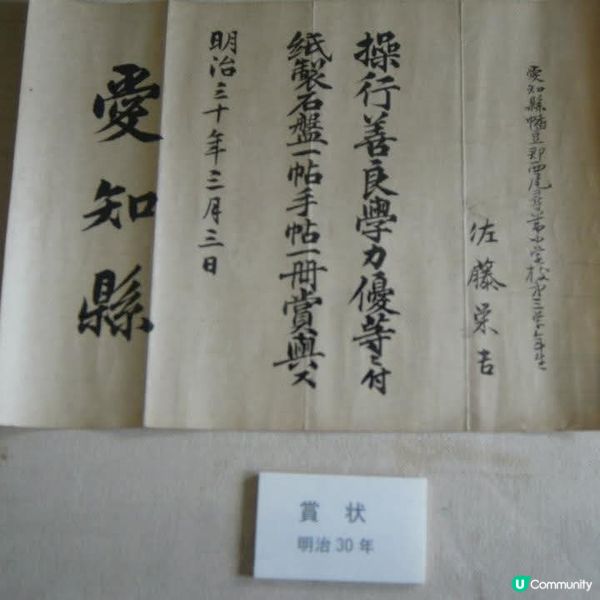 愛知縣幡豆郡西尾尋常小学校第三学年生
佐藤栄吉
操行善良學力優等ニ付
紙製石盤一帖手帖一冊賞與ス
明治三十年三月三日
愛知縣
賞状
明治30年
U Community